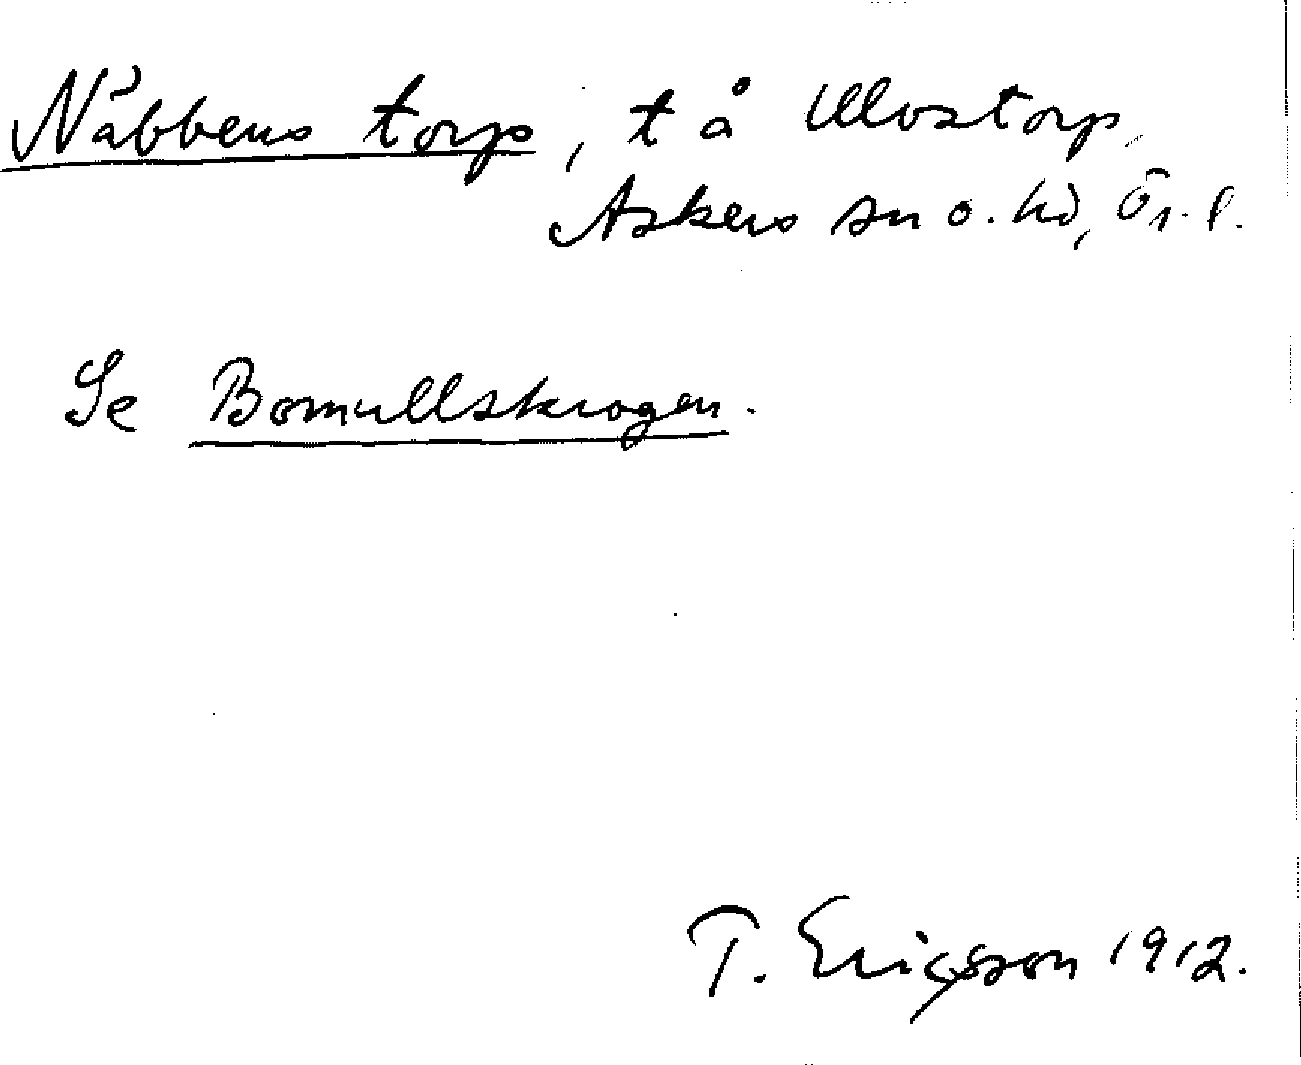 Nåbbens torp, t å Ulvstorp,
Askers sn o. hd, Ör. l.
Se Bomullskrogen.
T. Ericsson 1912.